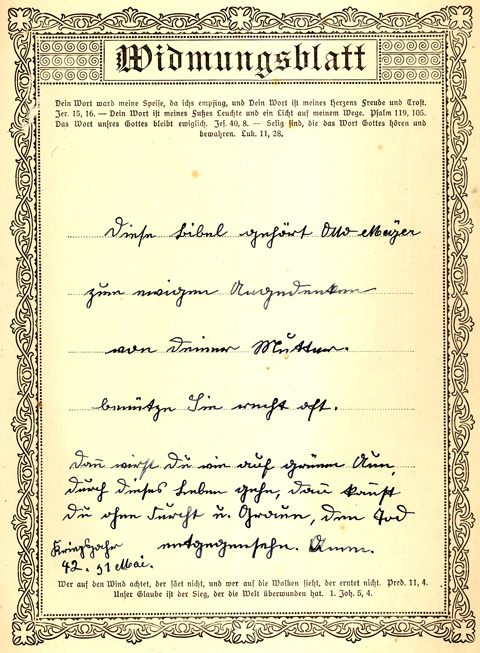 Widmungsblatt
Dein Wort ward meine Speise, da ichs empfing, und Dein Wort ist meines Herzens Freude und Trost.
Jer. 15, 16. — Dein Wort ist meines Fußes Leuchte und ein Licht auf meinem Wege. Psalm 119, 105.
Das Wort unsres Gottes bleibt ewiglich. Jes. 40, 8. — Selig sind, die das Wort Gottes hören und
bewahren. Luk. 11, 28.
Diese Bibel gehört Otto Mayer
zum ewigen Angedenken
von deiner Mutter.
benütze Sie recht oft.
Dan̄ wirst du wie auf grünen Auen,
durch dieses Leben gehn, dan̄ kan̄st
du ohne Furcht u. Grauen, dem Tod
entgegensehn. Amen.
Kriegsjahr
42. 31 Mai.
Wer auf den Wind achtet, der säet nicht, und wer auf die Wolken sieht, der erntet nicht. Pred. 11, 4.
Unser Glaube ist der Sieg, der die Welt überwunden hat. 1. Joh. 5, 4.